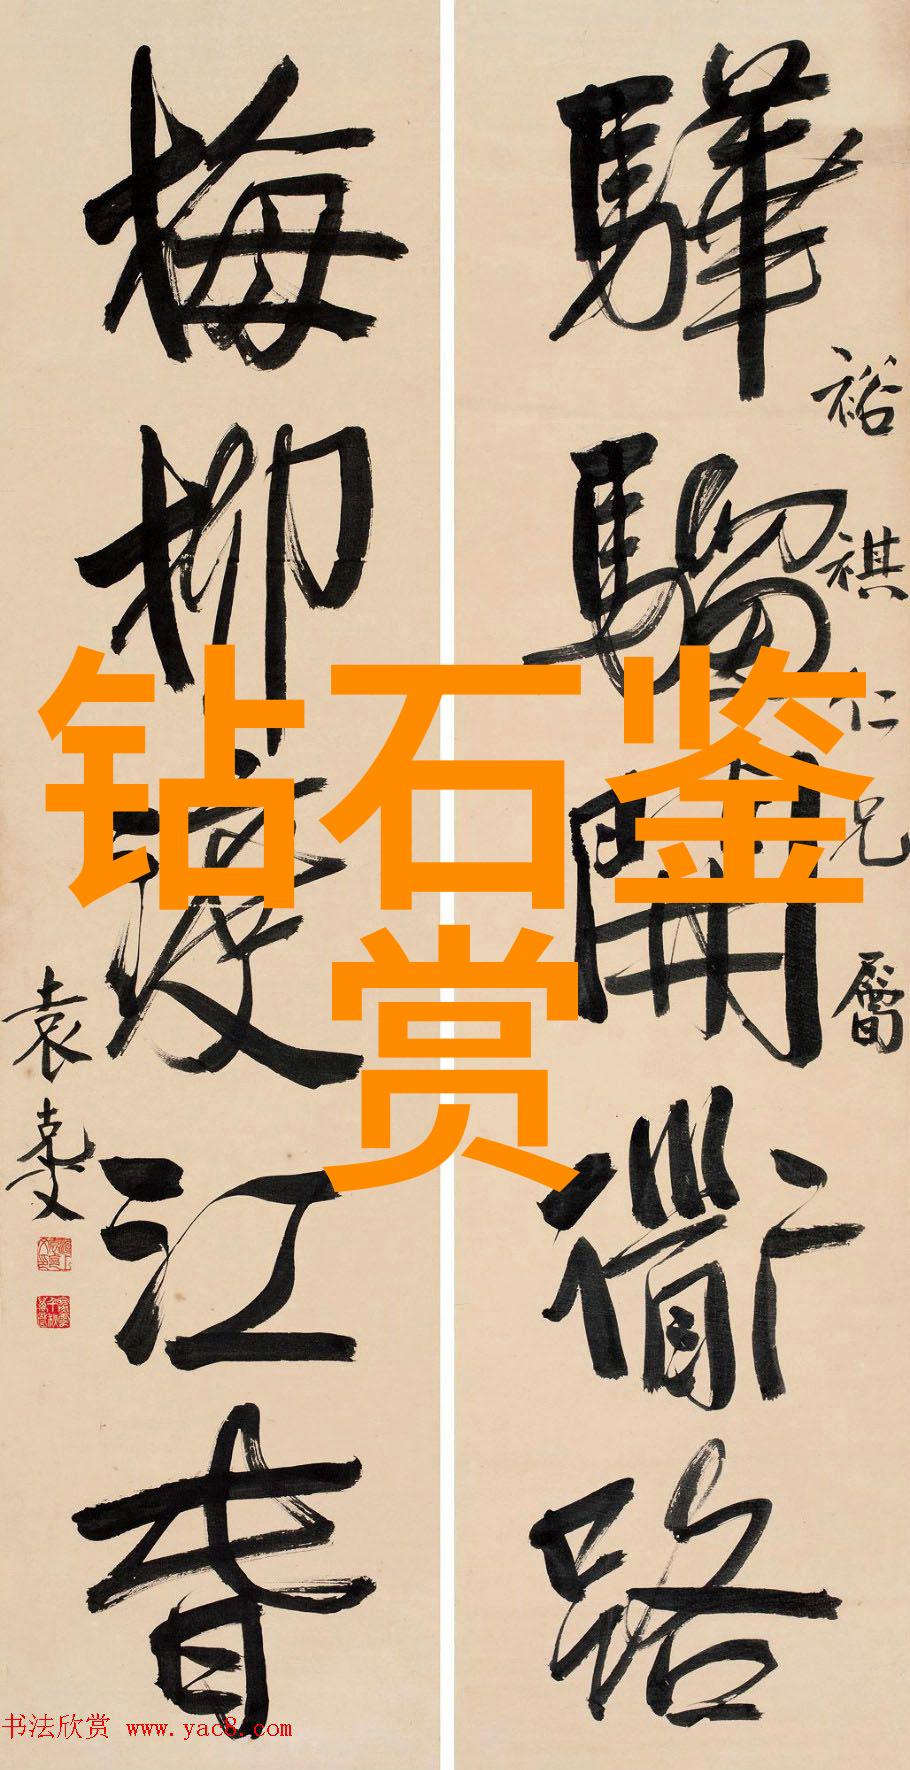 驊騮開衜路
裕祺仁兄屬
梅柳渡江春
袁克文
钻石鉴
赏
书法欣赏 www.yac8.com